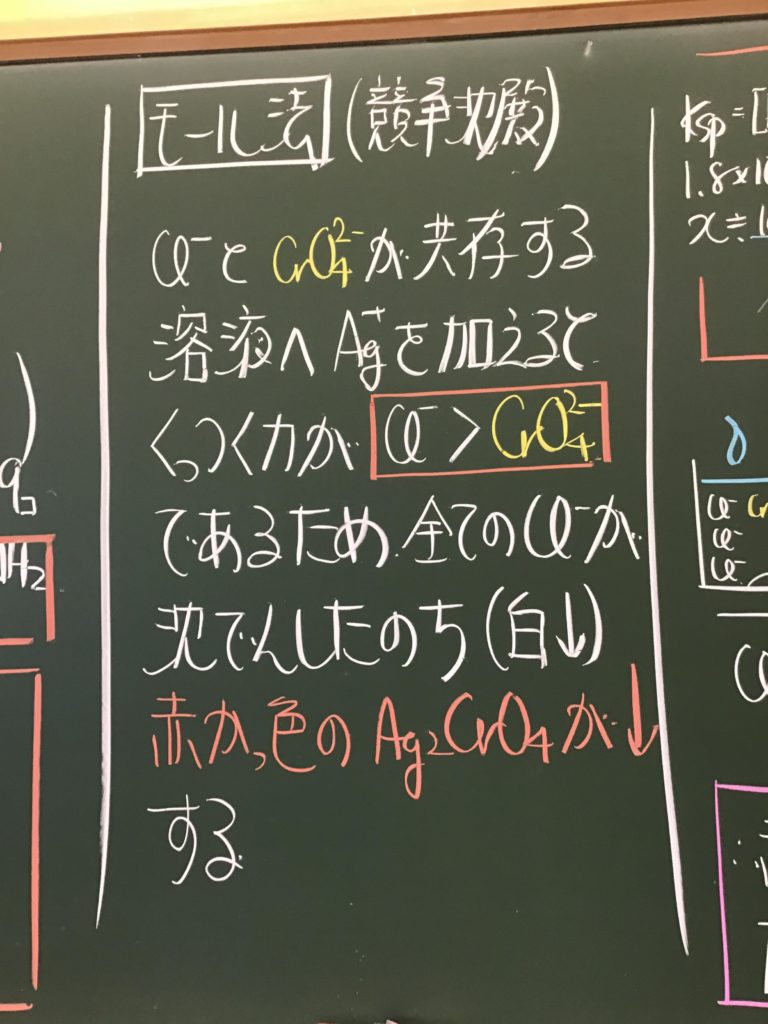 モール法 (競争沈殿)
Cl⁻と CrO₄²⁻が共存する
溶液へ Ag⁺を加えると
くっつく力が Cl⁻ > CrO₄²⁻
であるため 全ての Cl⁻が
沈でんしたのち (白↓)
赤かっ色の Ag₂CrO₄が↓
する
Ksp = [
1.8×10
x≒
Cl⁻ Cr
Cl⁻
Cl⁻